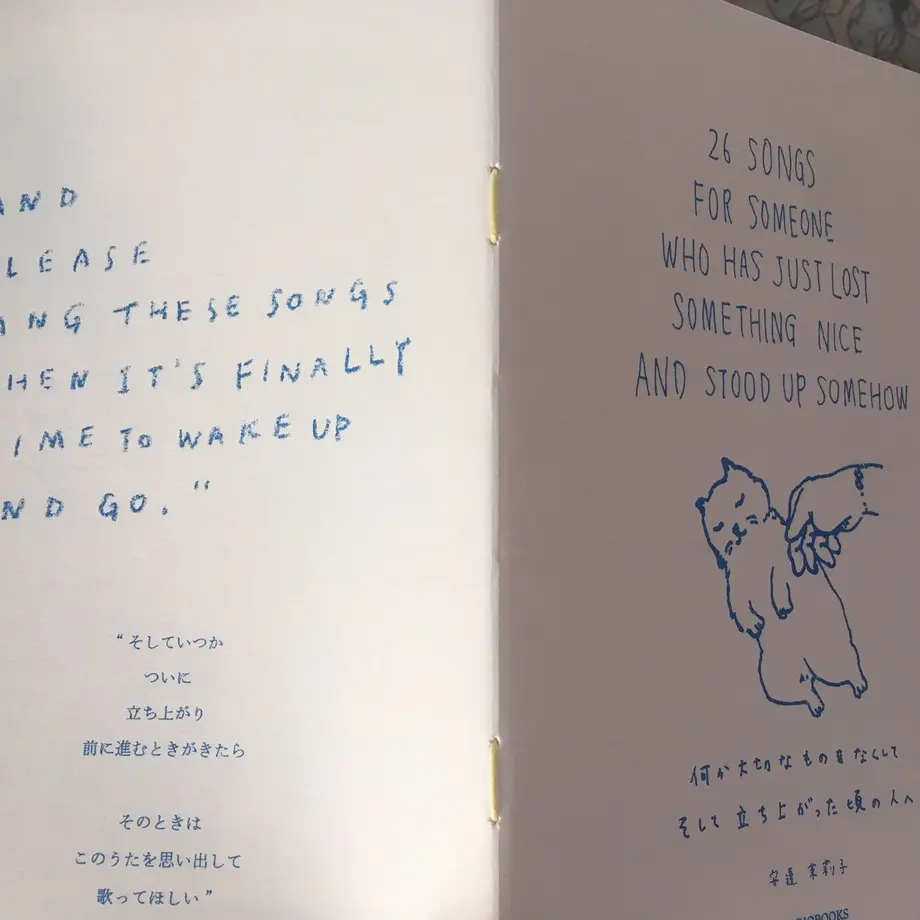 AND
LEASE
ANG THESE SONGS
HEN IT'S FINALLY
IME TO WAKE UP
ND GO."
"そしていつか
ついに
立ち上がり
前に進むときがきたら
そのときは
このうたを思い出して
歌ってほしい"
26 SONGS
FOR SOMEONE
WHO HAS JUST LOST
SOMETHING NICE
AND STOOD UP SOMEHOW
何か大切なものをなくして
そして立ち上がった頃の人へ
安達茉莉子
BOOKS